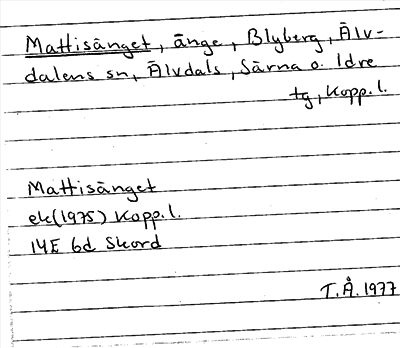 Mattisänget, änge, Blyberg, Älv-
dalens sn, Älvdals, Särna o. Idre
tg, Kopp. l.
Mattisänget
ek(1975) Kopp. l.
14E 6d Skord
T.Å. 1977